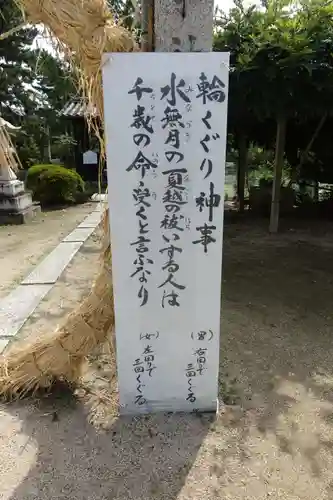 輪くぐり神事
水無月の夏越の祓いする人は
千歳の命受くと言ふなり
(男) 右回りで
三回くぐる
(女) 左回りで
三回くぐる